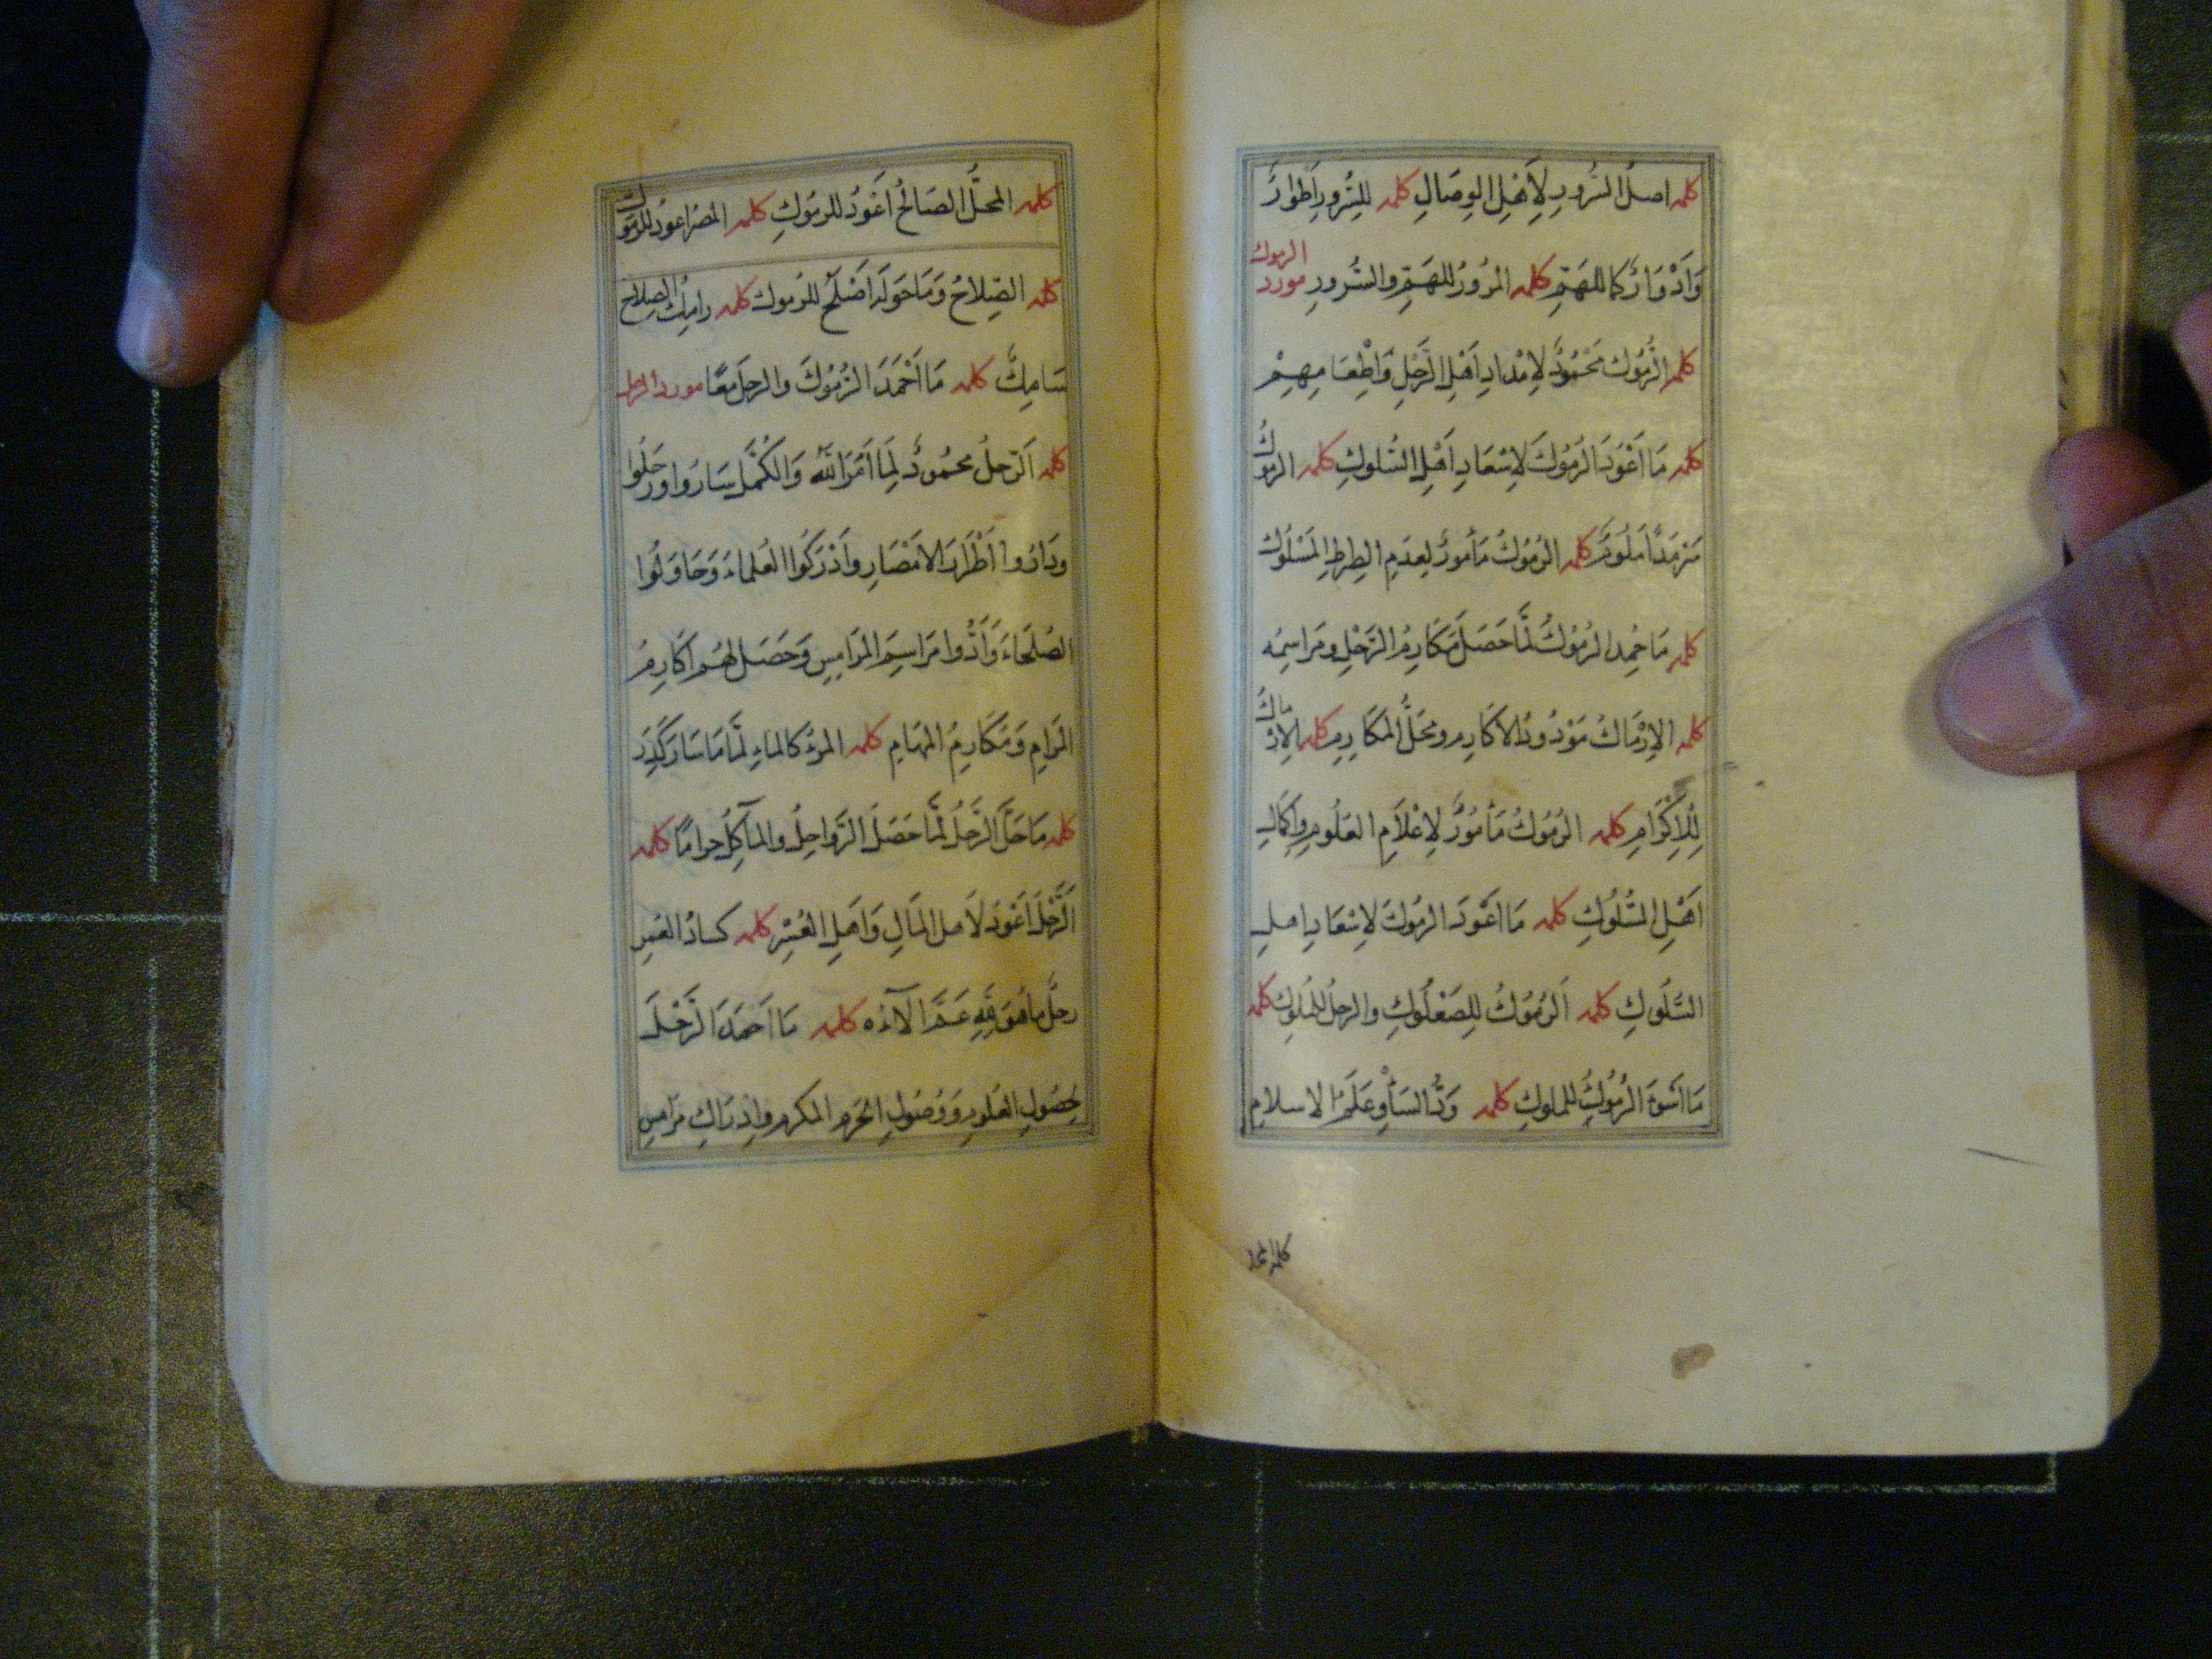 كلمه اصل السُرورِ لِأَهْلِ الوِصَالِ كلمه للسُّرورِ أَطوارٌ
وَأَدْوَارٌ كما للهَمِّ كلمه المرُورُ للهَمِّ والسُّرورِ مورد الرموك
كلمه الرُّمُوك مَحْمُودٌ لِإمْدادِ أَهْلِ الرَّحْلِ وَإِطْعَامِهِمْ
كلمه مَا أَعْوَدَ الرمُوكَ لإِسْعَادِ أَهْلِ السُّلوكِ كلمه الرموكُ
سَرْمَدًا مَلُومٌ كلمه الرمُوكُ مَأمورٌ لِعدَمِ الصِراطِ المَسْلُوكِ
كلمه مَا حُمِد الرمُوكُ لَمَّا حَصَلَ مَكَارِمُ الرَّحْلِ ومَراسِمُه
كلمه الإِرْمَاكُ مَوْدُودُ الأكَارِمِ ومَحَلُّ المكَارِمِ كلمه الإرماكُ
لِلْإِكْرَامِ كلمه الرمُوكُ مَأمُورٌ لِإعْلَامِ العلُومِ وإكمَالِ
أَهْلِ السُّلُوكِ كلمه مَا أَعْوَدَ الرمُوكَ لإِسْعَادِ اهلِ
السُّلُوكِ كلمه أَلرمُوكُ لِلصَعْلُوكِ والرحلُ للمُلُوكِ كلمه
مَا أَسْوَءَ الرمُوكَ للملوكِ كلمه وَدُّ السَأْوِ عَلَمُ الاسلامِ
كلمه المحل
كلمه المحلُّ الصَالحُ أَعْوَدُ للرمُوكِ كلمه المصْرُ اعودُ للرموك
كلمه الصِّلَاحُ وَمَا حَولَه أَصْلَحُ للرموك كلمه رامِكُ الصِلاحِ
سَامِكٌ كلمه مَا أَحْمَدَ الرمُوكَ والرحلَ مَعًا مورد الرحل
كلمه اَلرّحلُ محمُودٌ لِمَا أَمَرَ اللهُ وَالكُمَّل سَارُوا ورَحَلُوا
ودَارُوا أَطْرَارَ الامْصَارِ وأَدْرَكُوا العُلماءَ وَحَاوَلُوا
الصُلَحَاءَ وَأَدُّوا مَرَاسِمَ المَرَامِسِ وَحَصَل لهُم أكَارِمُ
المَرَامِ وَمَكَارِمُ المهَامِ كلمه المرءُ كالماءِ لَمَّا مَا سَارَ كَدِرَ
كلمه مَا حَلَّ الرَّحلُ لَمَّا حَصَلَ الرَّواحِلُ والمآكِلُ حرامًا كلمه
الرَّحْلُ أَعْوَدُ لأهل المَالِ وَأَهلِ العُسْرِ كلمه كسادُ العُمرِ
رحلُ ما هُوَ لِلّهِ عَمَّ الآؤه كلمه مَا أَحمَدَ الرَّحْلَ
لحصُولِ العُلُومِ وَوُصُولِ الحَرَمِ المكرم وإدرَاكِ مرَامسِ